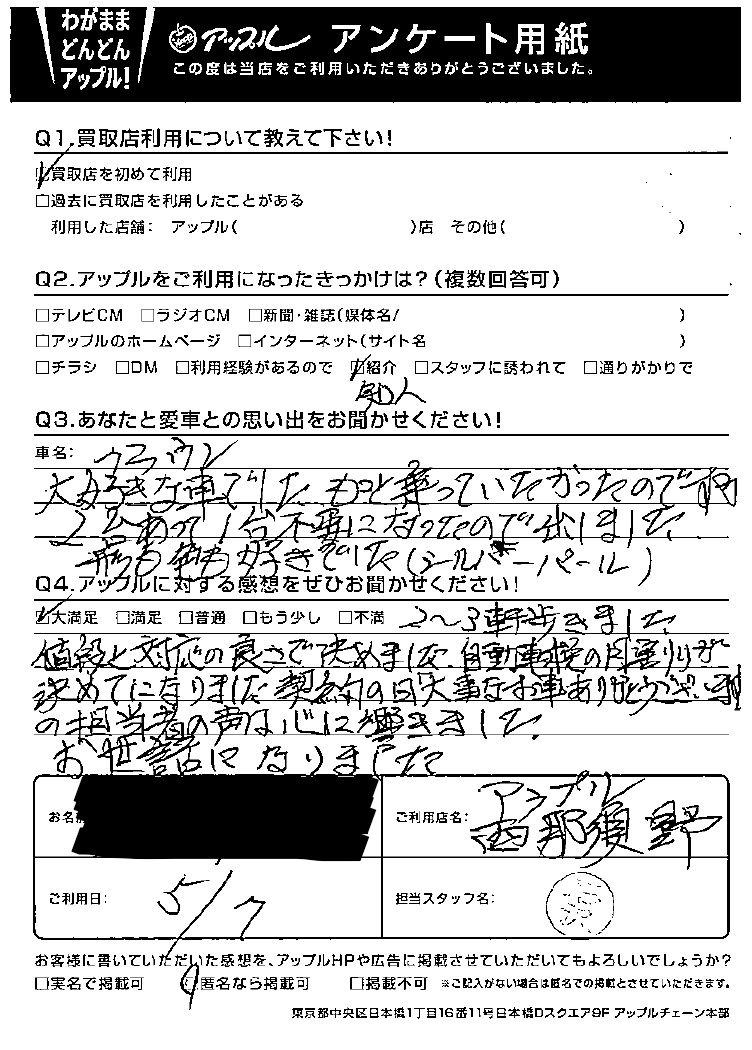 わがまま
どんどん
アップル!
アップル アンケート用紙
この度は当店をご利用いただきありがとうございました。
Q1.買取店利用について教えて下さい!
☑買取店を初めて利用
□過去に買取店を利用したことがある
利用した店舗: アップル( )店 その他( )
Q2.アップルをご利用になったきっかけは?(複数回答可)
□テレビCM □ラジオCM □新聞・雑誌(媒体名/ )
□アップルのホームページ □インターネット(サイト名 )
□チラシ □DM □利用経験があるので ☑紹介 □スタッフに誘われて □通りがかりで
知人
Q3.あなたと愛車との思い出をお聞かせください!
車名: クラウン
大好きな車でした もっと乗っていたかったのですが
2台あって1台不要になったので出しました
形も色も好きでした(シルバーパール)
Q4.アップルに対する感想をぜひお聞かせください!
☑大満足 □満足 □普通 □もう少し □不満 2〜3軒歩きました
値段と対応の良さで決めました 自動車税の月割りが
決めてになりました 契約の日大事なお車ありがとうございます
の担当者の声は心に響きました
お世話になりました
お名前
ご利用店名: アップル
西那須野
ご利用日: 5/7
担当スタッフ名:
お客様に書いていただいた感想を、アップルHPや広告に掲載させていただいてもよろしいでしょうか?
□実名で掲載可 ☑匿名なら掲載可 □掲載不可 ※ご記入がない場合は匿名での掲載とさせていただきます。
東京都中央区日本橋1丁目16番11号日本橋Dスクエア9F アップルチェーン本部